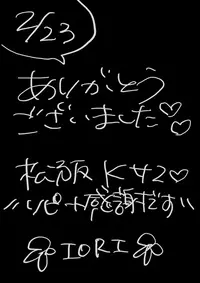 2/23
ありがとう
ございました♡♡
松阪 K サマ♡
〃リピート感謝だす〃
IORI